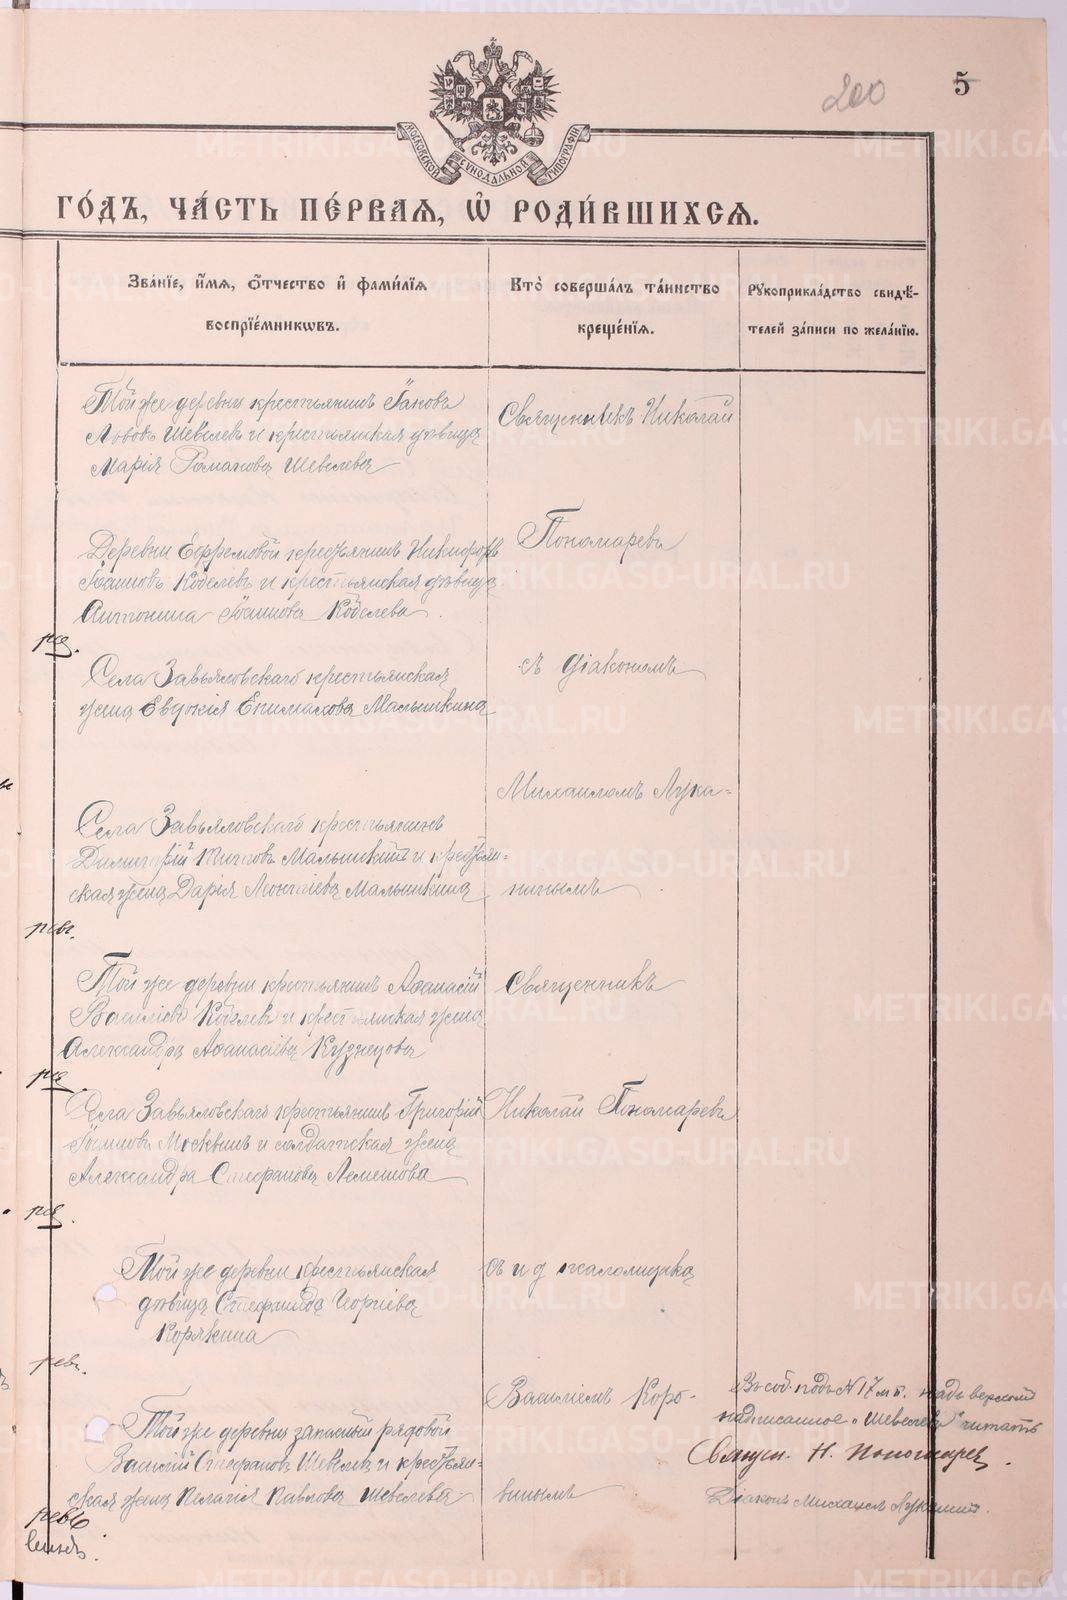 200
5
МОСКОВСКОЙ СѴНОДАЛЬНОЙ ТИПОГРАФІИ
ГО́ДЪ, ЧА́СТЬ ПЕ́РВАЯ, Ѽ РОДИ́ВШИХСЯ.
Зва́нїе, и҆́мя, ѻ҆́тчество и҆ фами́лїя
воспрїе́мникѡвъ.
Кто̀ соверша́лъ та́инство
креще́нїя.
Рꙋкоприкла́дство свидѣ́-
телей за́писи по жела́нїю.
Той же деревни крестьянинъ Іаковъ
Львовъ Шевелевъ и крестьянская дѣвица
Марія Романова Шевелева
Священникъ Николай
Деревни Ефремовой крестьянинъ Никифоръ
Іоанновъ Кобелевъ и крестьянская дѣвица
Антонина Іоаннова Кобелева.
Пономаревъ
Села Завьяловскаго крестьянская
жена Евдокія Епимахова Малышкина
съ діакономъ
Михаиломъ Лука-
Села Завьяловскаго крестьянинъ
Димитрій Титовъ Малышкинъ и крестьян-
ская жена Дарія Леонтіева Малышкина
нинымъ
Той же деревни крестьянинъ Аѳанасій
Васильевъ Кобелевъ и крестьянская жена
Александра Аѳанасіева Кузнецова
Священникъ
Села Завьяловскаго крестьянинъ Григорій
Іоанновъ Москвинъ и солдатская жена
Александра Стефанова Лемешова
Николай Пономаревъ
Той же деревни крестьянская
дѣвица Стефанида Георгіева
Корякина
съ и д псаломщика
Василіемъ Коро-
Той же деревни запасный рядовой
Василій Стефановъ Шевелевъ и крестьян-
ская жена Пелагія Павлова Шевелева
винымъ
Въ соб. подъ N 17 мъ. надъ верхомъ
надписанное "Шевелева" читать
Священ. Н. Пономаревъ.
Діаконъ Михаилъ Луканинъ.
METRIKI.GASO-URAL.RU